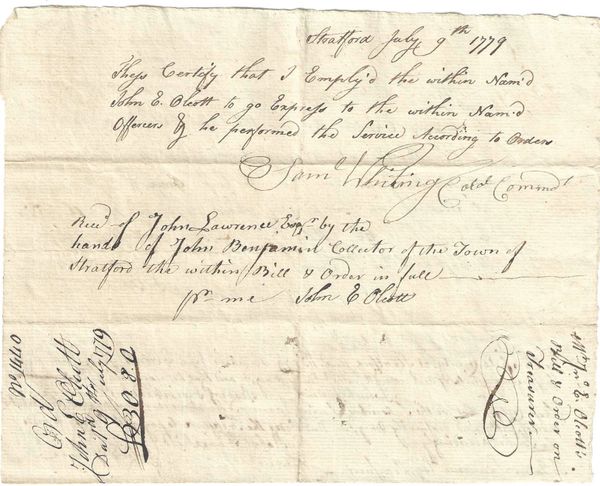 Stratford July 9th 1779
Thess Certify that I Emply'd the within Nam'd
John E. Olcott to go Express to the within Nam'd
Officers & he performed the Service According to Orders
Saml Whiting Colo. Commdt
Recd of John Lawrence Esqr by the
hands of John Benjamin Collector of the Town of
Stratford the within Bill & Order in full
pr me John E Olcott
No 1440
Ord
John E Olcott
Datd 9th July 1779
£30.8.0
Mr Jno E. Olcott's
Bill & Order on
Treasurer